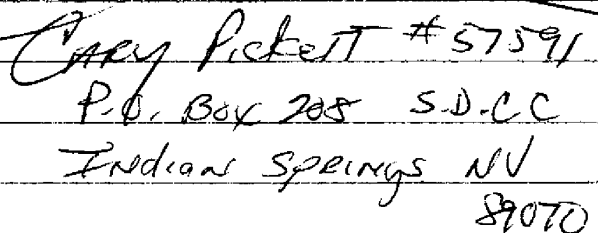 CARY PickeTT #57591
P.O. Box 208 S.D.C.C
INdian SpRINgs NV
89070